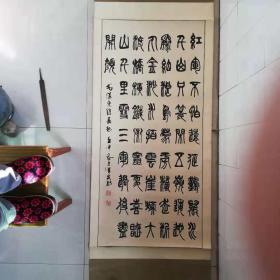 紅軍不怕遠征難萬水
千山只等閒五嶺逶迤
騰細浪烏蒙磅礴走泥
丸金沙水拍雲崖暖大
渡橋橫鐵索寒更喜岷
山千里雪三軍過後盡
開顏